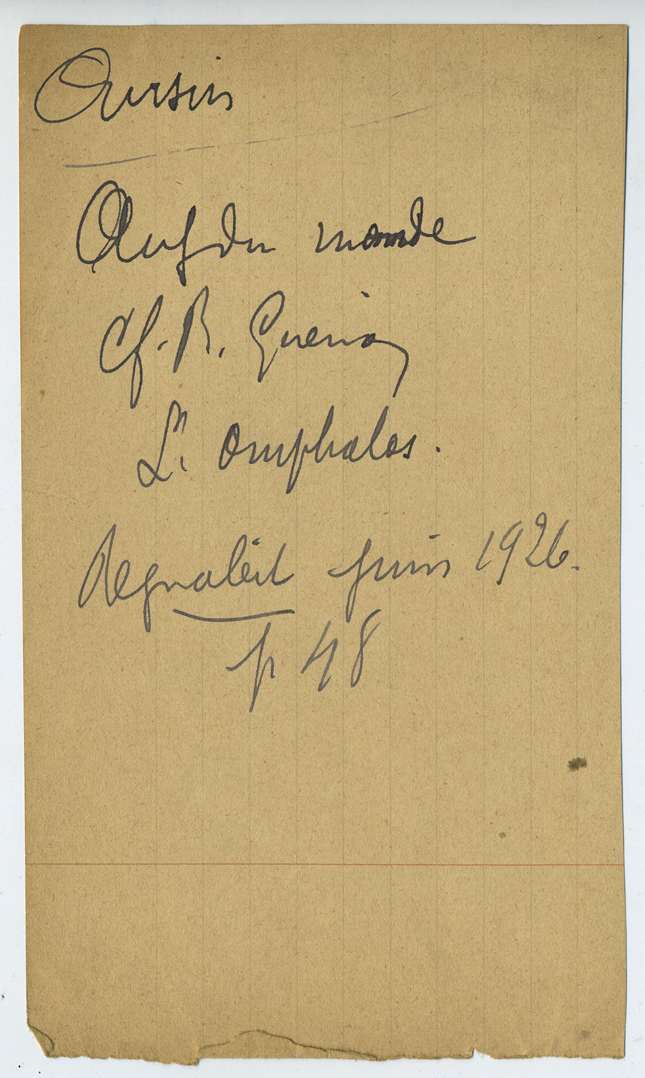 Oursin
Œuf du monde
Cf. R. Guenon
L'. omphalos.
Regnabit juin 1926.
p 48